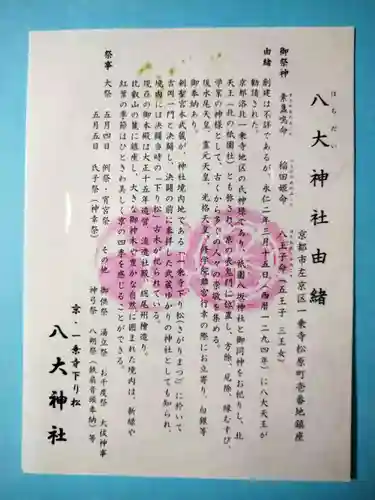 はちだい
八大神社由緒
京都市左京区一乗寺松原町壱番地鎮座
御祭神 素盞嗚命 稲田姫命 八王子命(五王子 三王女)
由緒 創建は不詳であるが、永仁二年三月十五日(西暦一二九四年)に八大天王が
勧請された。
京都洛北一乗寺地区の氏神様であり、祇園八坂神社と御同神をお祀りし、北
天王(北の祇園社)とも称され、京の表鬼門に位置し、方除、厄除、縁むすび、
学業の神様として、古くから多くの人々の崇敬を集める。
後水尾天皇、霊元天皇、光格天皇、修学院離宮行幸の際にお立寄り、白銀等
御奉納あり。
剣聖宮本武蔵が、神社境内地である「一乗寺下り松(さがりまつ)」に於いて、
吉岡一門と決闘し、決闘の前に参拝した武蔵ゆかりの神社としても知られ、
境内には決闘当時の「下り松」古木が祀られている。
現在の御本殿は大正十五年造営 流造社殿、総尾州檜造り。
比叡山の麓に鎮座し、大きな御神木や豊かな自然に囲まれた境内は、新緑や
紅葉の季節はひときわ美しく京の四季を感じることができる。
祭事 大祭 五月四日 例祭・宵宮祭 その他 御供祭 湯立祭 お千度祭 大祓神事
五月五日 氏子祭(神幸祭) 神弓祭 八朔祭(鉄扇音頭奉納)等
京・一乗寺下り松
八大神社